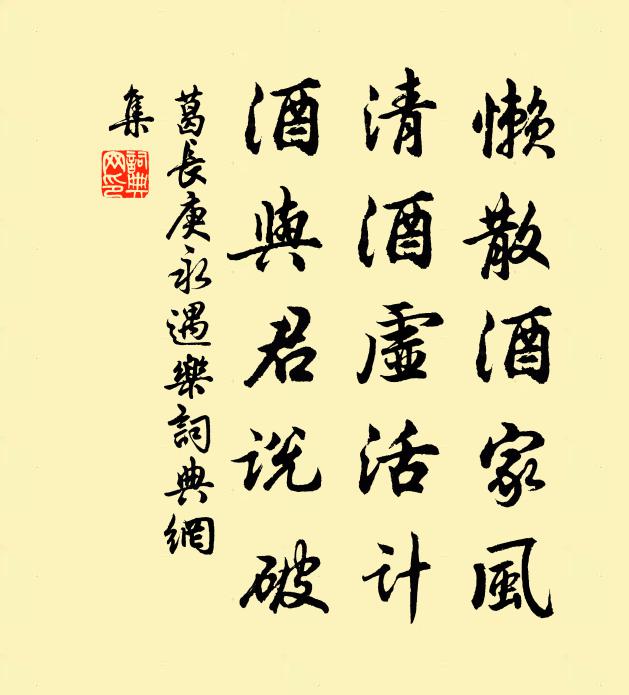 懶散酒家風
清酒虛活計
酒與君説破
葛長庚永遇樂詞典網
集
詞典
网印